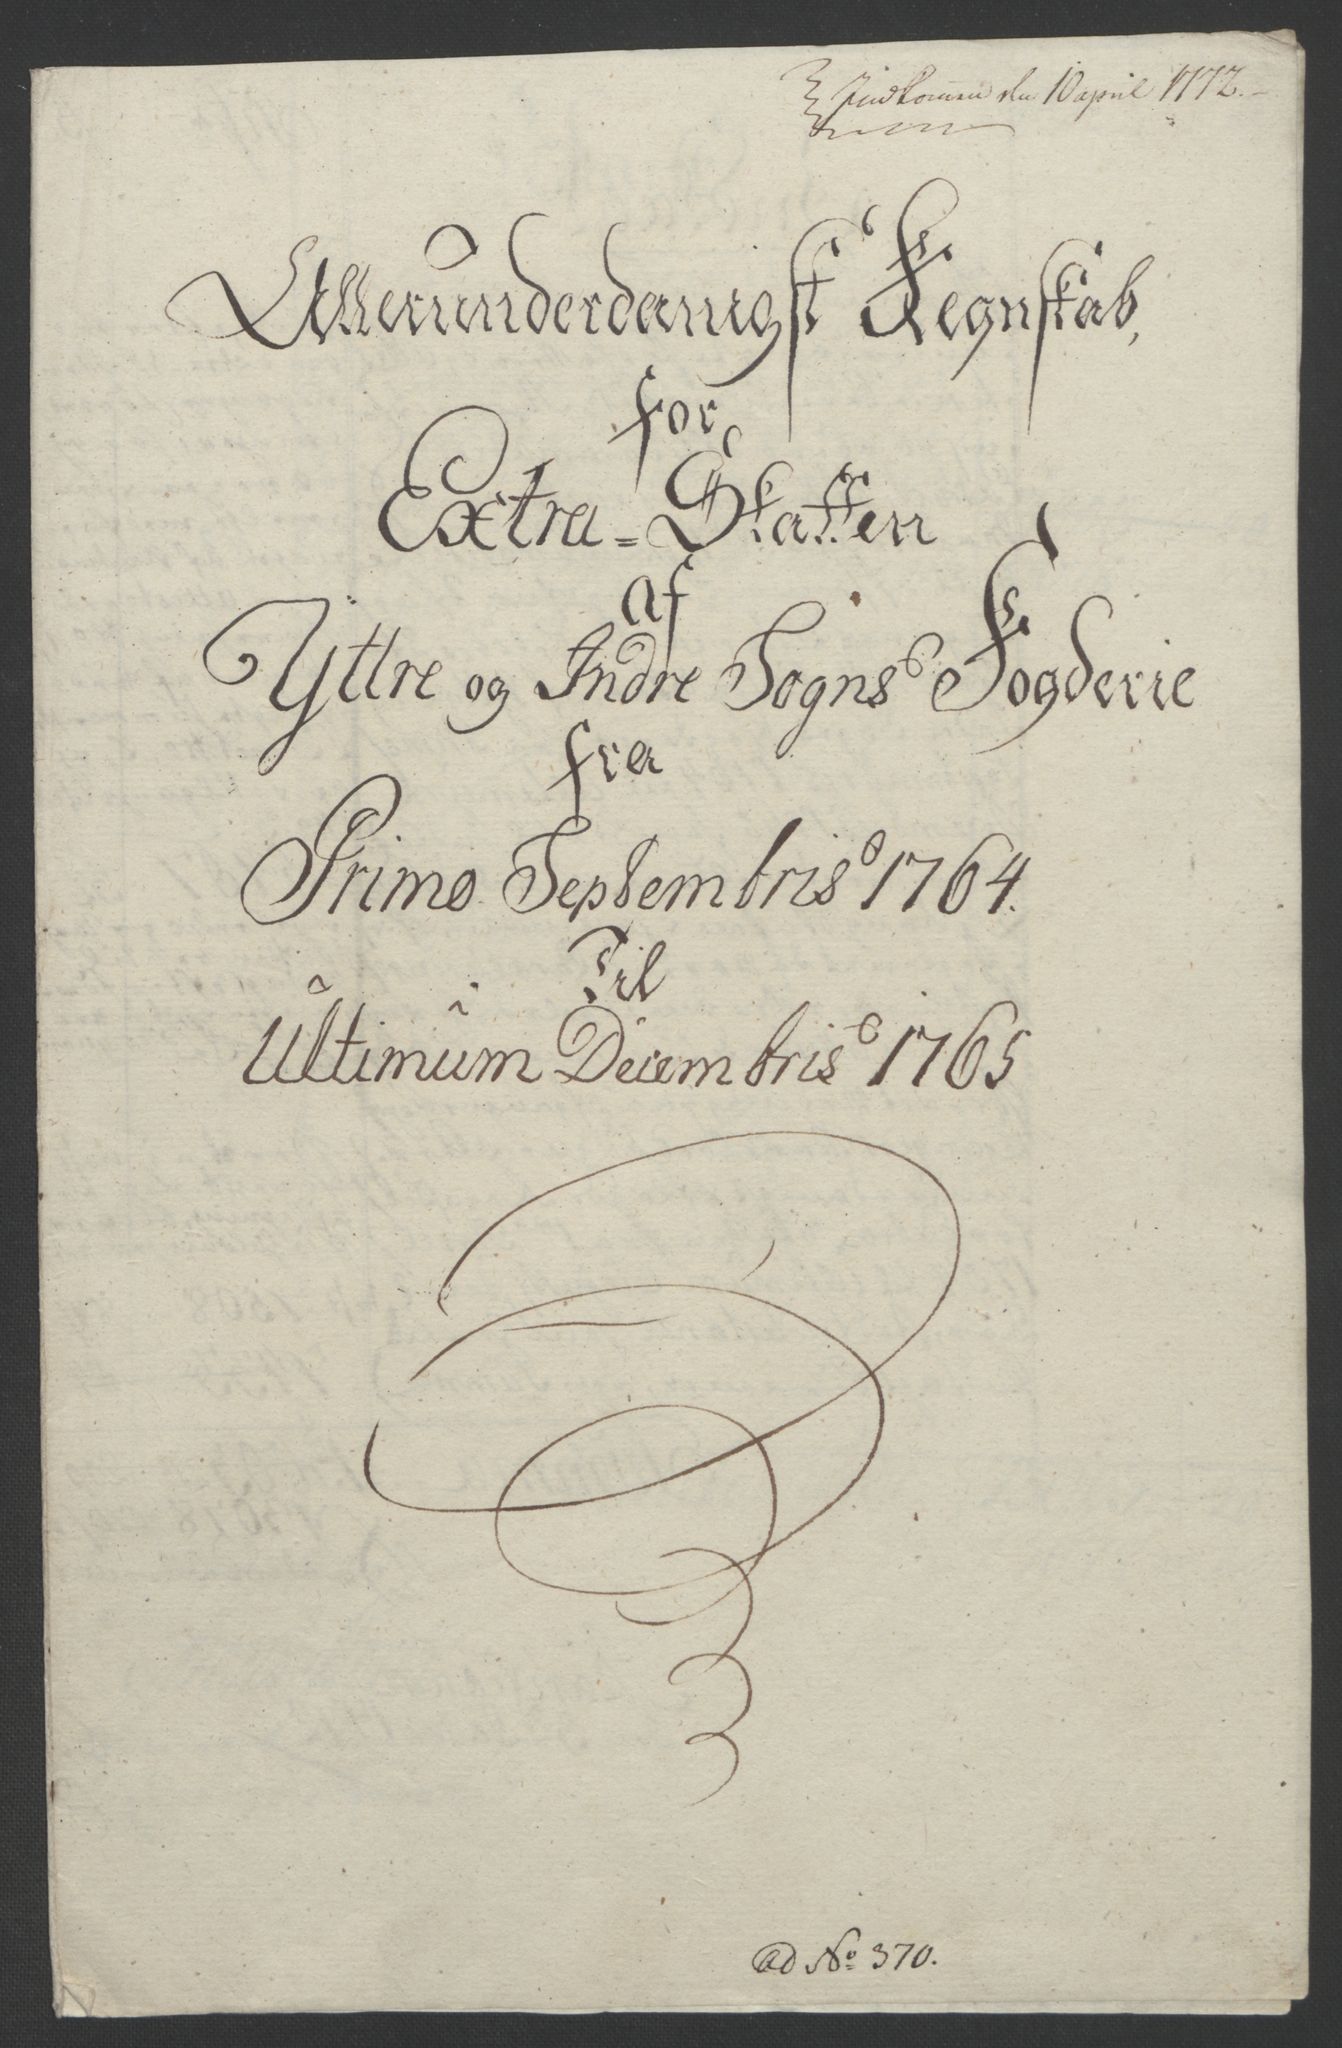 Indkommen den 10 april 1772.
Allerunderdanigst Regnskab,
for
Extra-Skatten
af
Yttre og Indre Sogns Fogderie
fra
Primo Septembris 1764.
Til
Ultimum Decembris 1765
ad No 370.